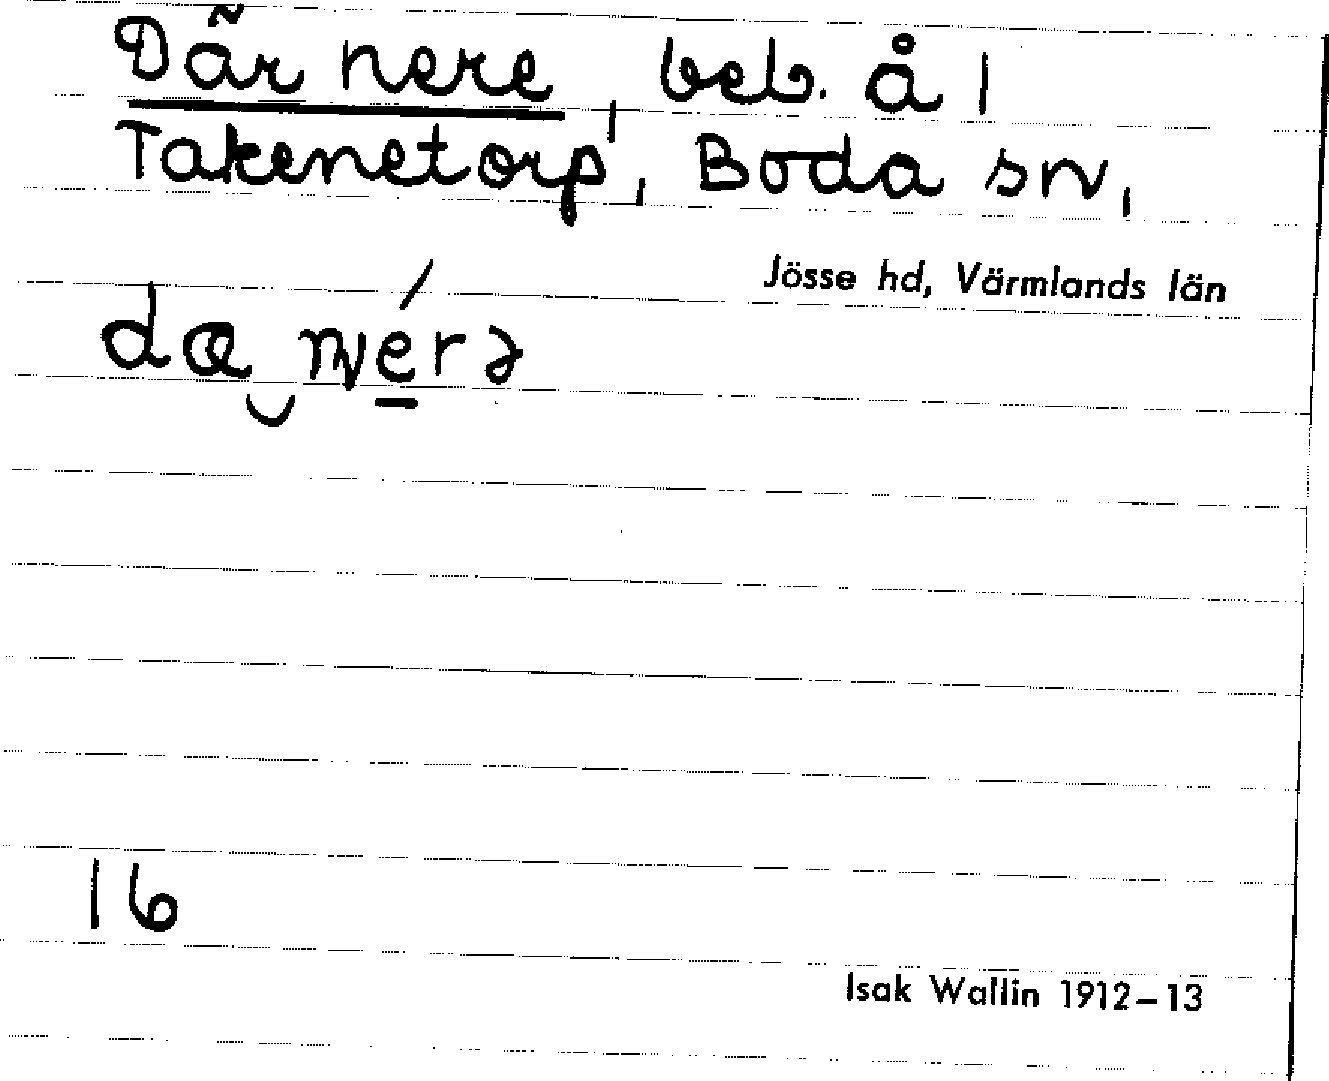 Där nere, beb. å 1
Takenetorp, Boda sn,
Jösse hd, Värmlands län
dæ nérə
16
Isak Wallin 1912–13